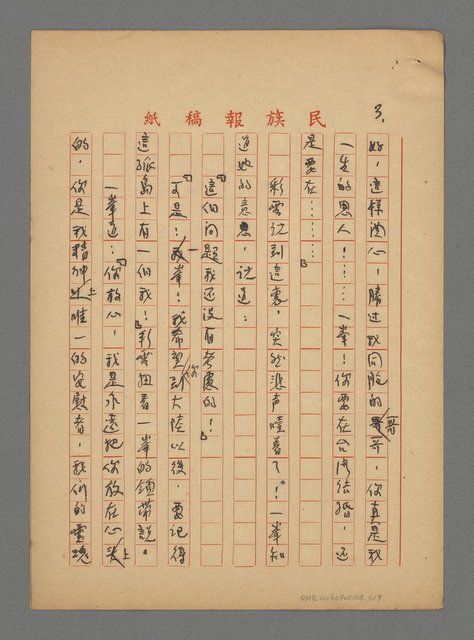 民族報稿紙
3.
好，這樣関心，勝过我同胞的哥哥，你真是我
一生的恩人！……一峯！你要在台湾结婚，还
是要在……」
彩雲说到這裏，突然悲声噎着了！。一峯知
道她的意思，说道：
「這個问题我还没有考慮的！」
「可是！一峯！我希望你到大陸以後，要记得
這孤島上有一個我！」彩雲扭着一峯的領帶說。
一峯道：「你放心，我是永遠把你放在心头上
的，你是我精神上唯一的安慰者，我们的靈魂
NMTL20060900108.019